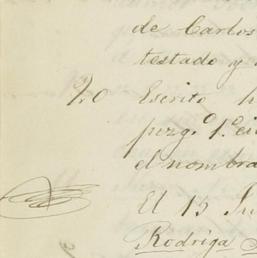 de Carlos
testado y
% Escrito h
juzg.º 1.º Ci
el nombra
El 15 Ju
Rodriga